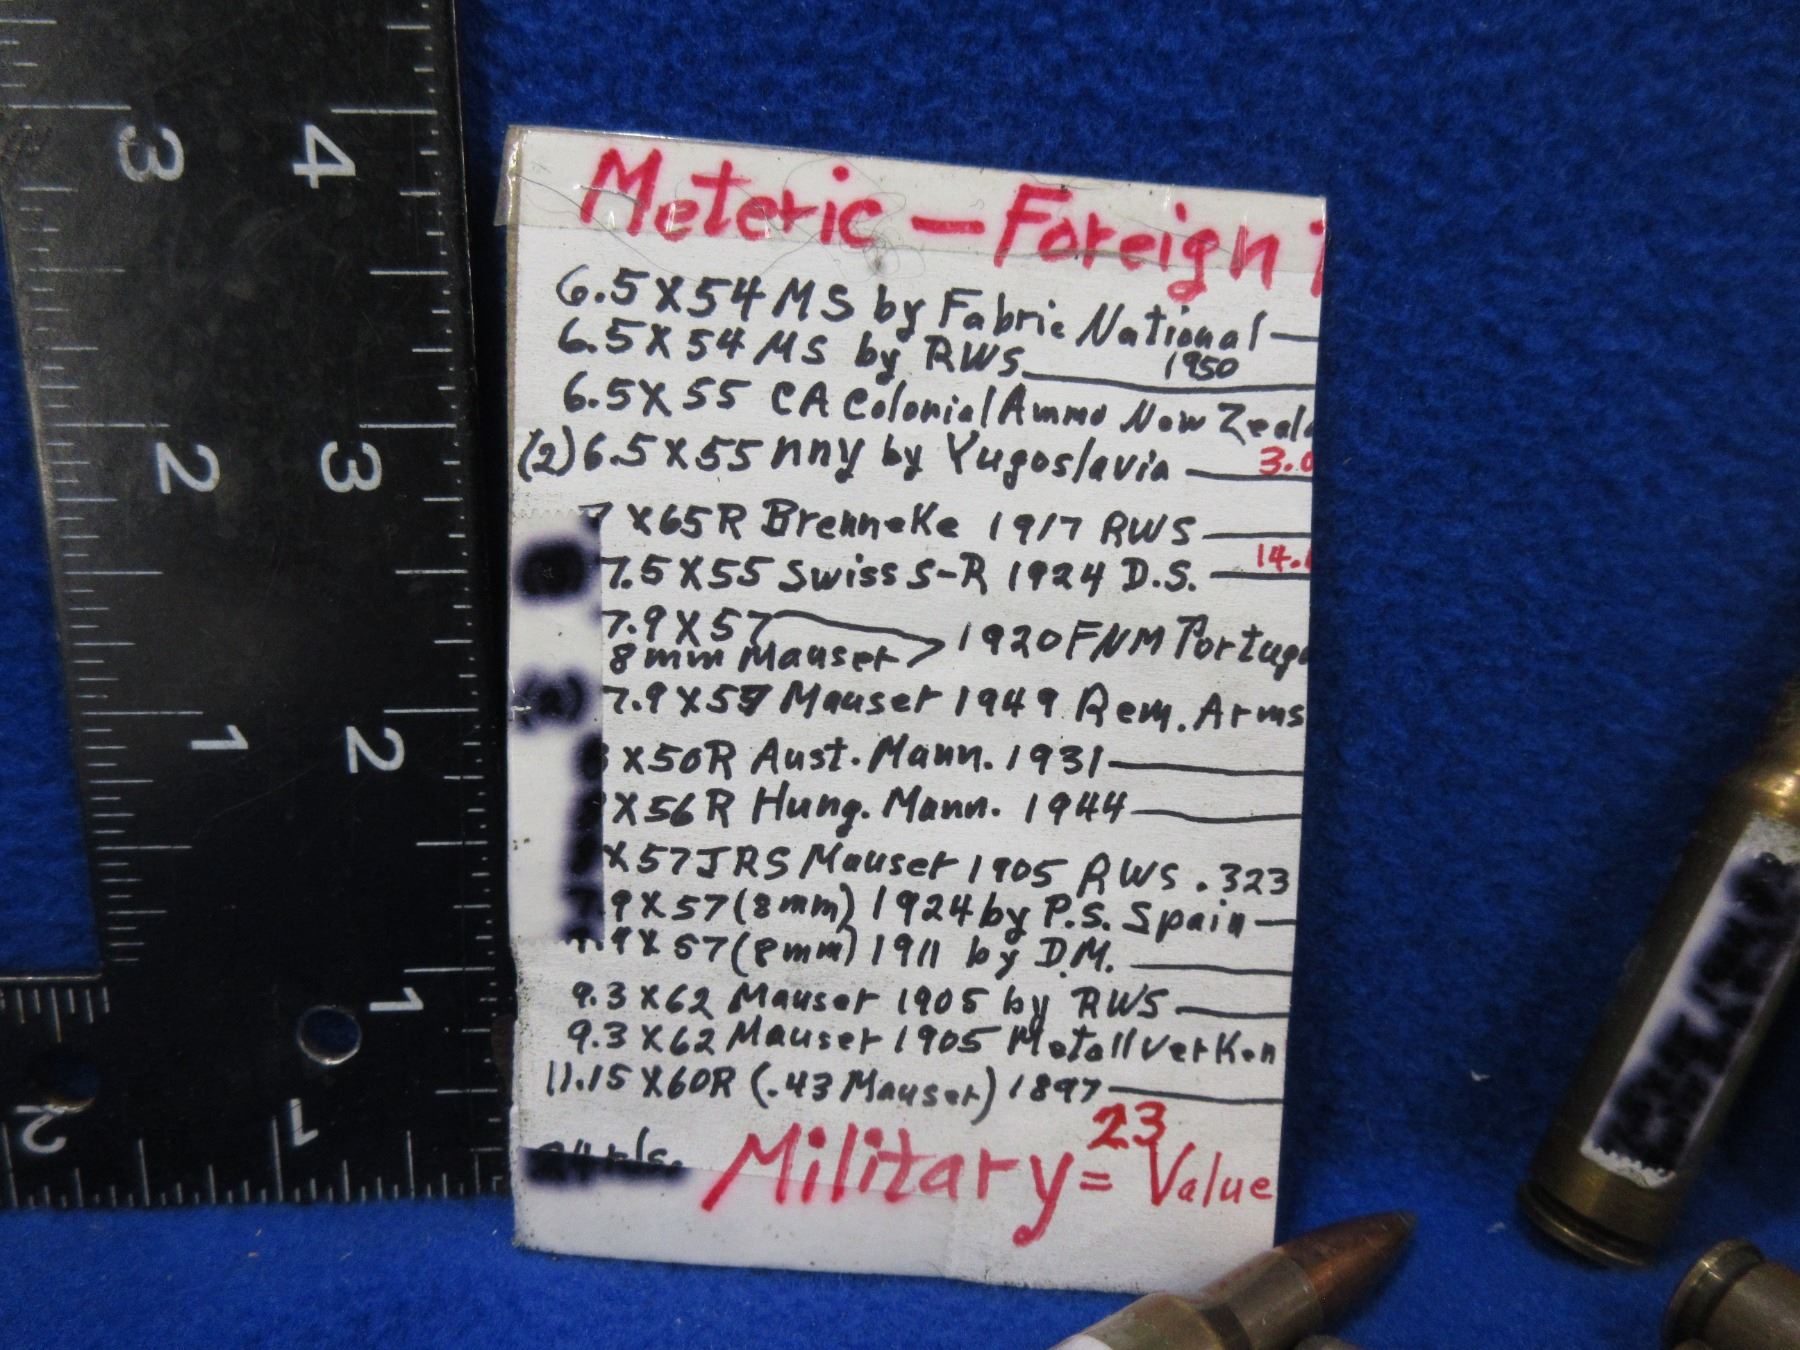 Meteric — Foreign
6.5X54 MS by Fabric National —
6.5X54 MS by RWS 1950
6.5X55 CA Colonial Ammo New Zeal
(2) 6.5X55 nny by Yugoslavia — 3.
7 X65R Brenneke 1917 RWS —
7.5X55 Swiss S-R 1924 D.S. — 14.
7.9X57
8mm Mauser > 1920 FNM Portug
(2) 7.9X57 Mauser 1949 Rem. Arms
X50R Aust. Mann. 1931 —
X56R Hung. Mann. 1944 —
X57JRS Mauser 1905 RWS .323
7.9X57 (8mm) 1924 by P.S. Spain —
.9X57 (8mm) 1911 by D.M. —
9.3X62 Mauser 1905 by RWS —
9.3X62 Mauser 1905 Metallverken
11.15X60R (.43 Mauser) 1897 —
Military = 23 Value
3 4
2 3
1 2
1
2 1